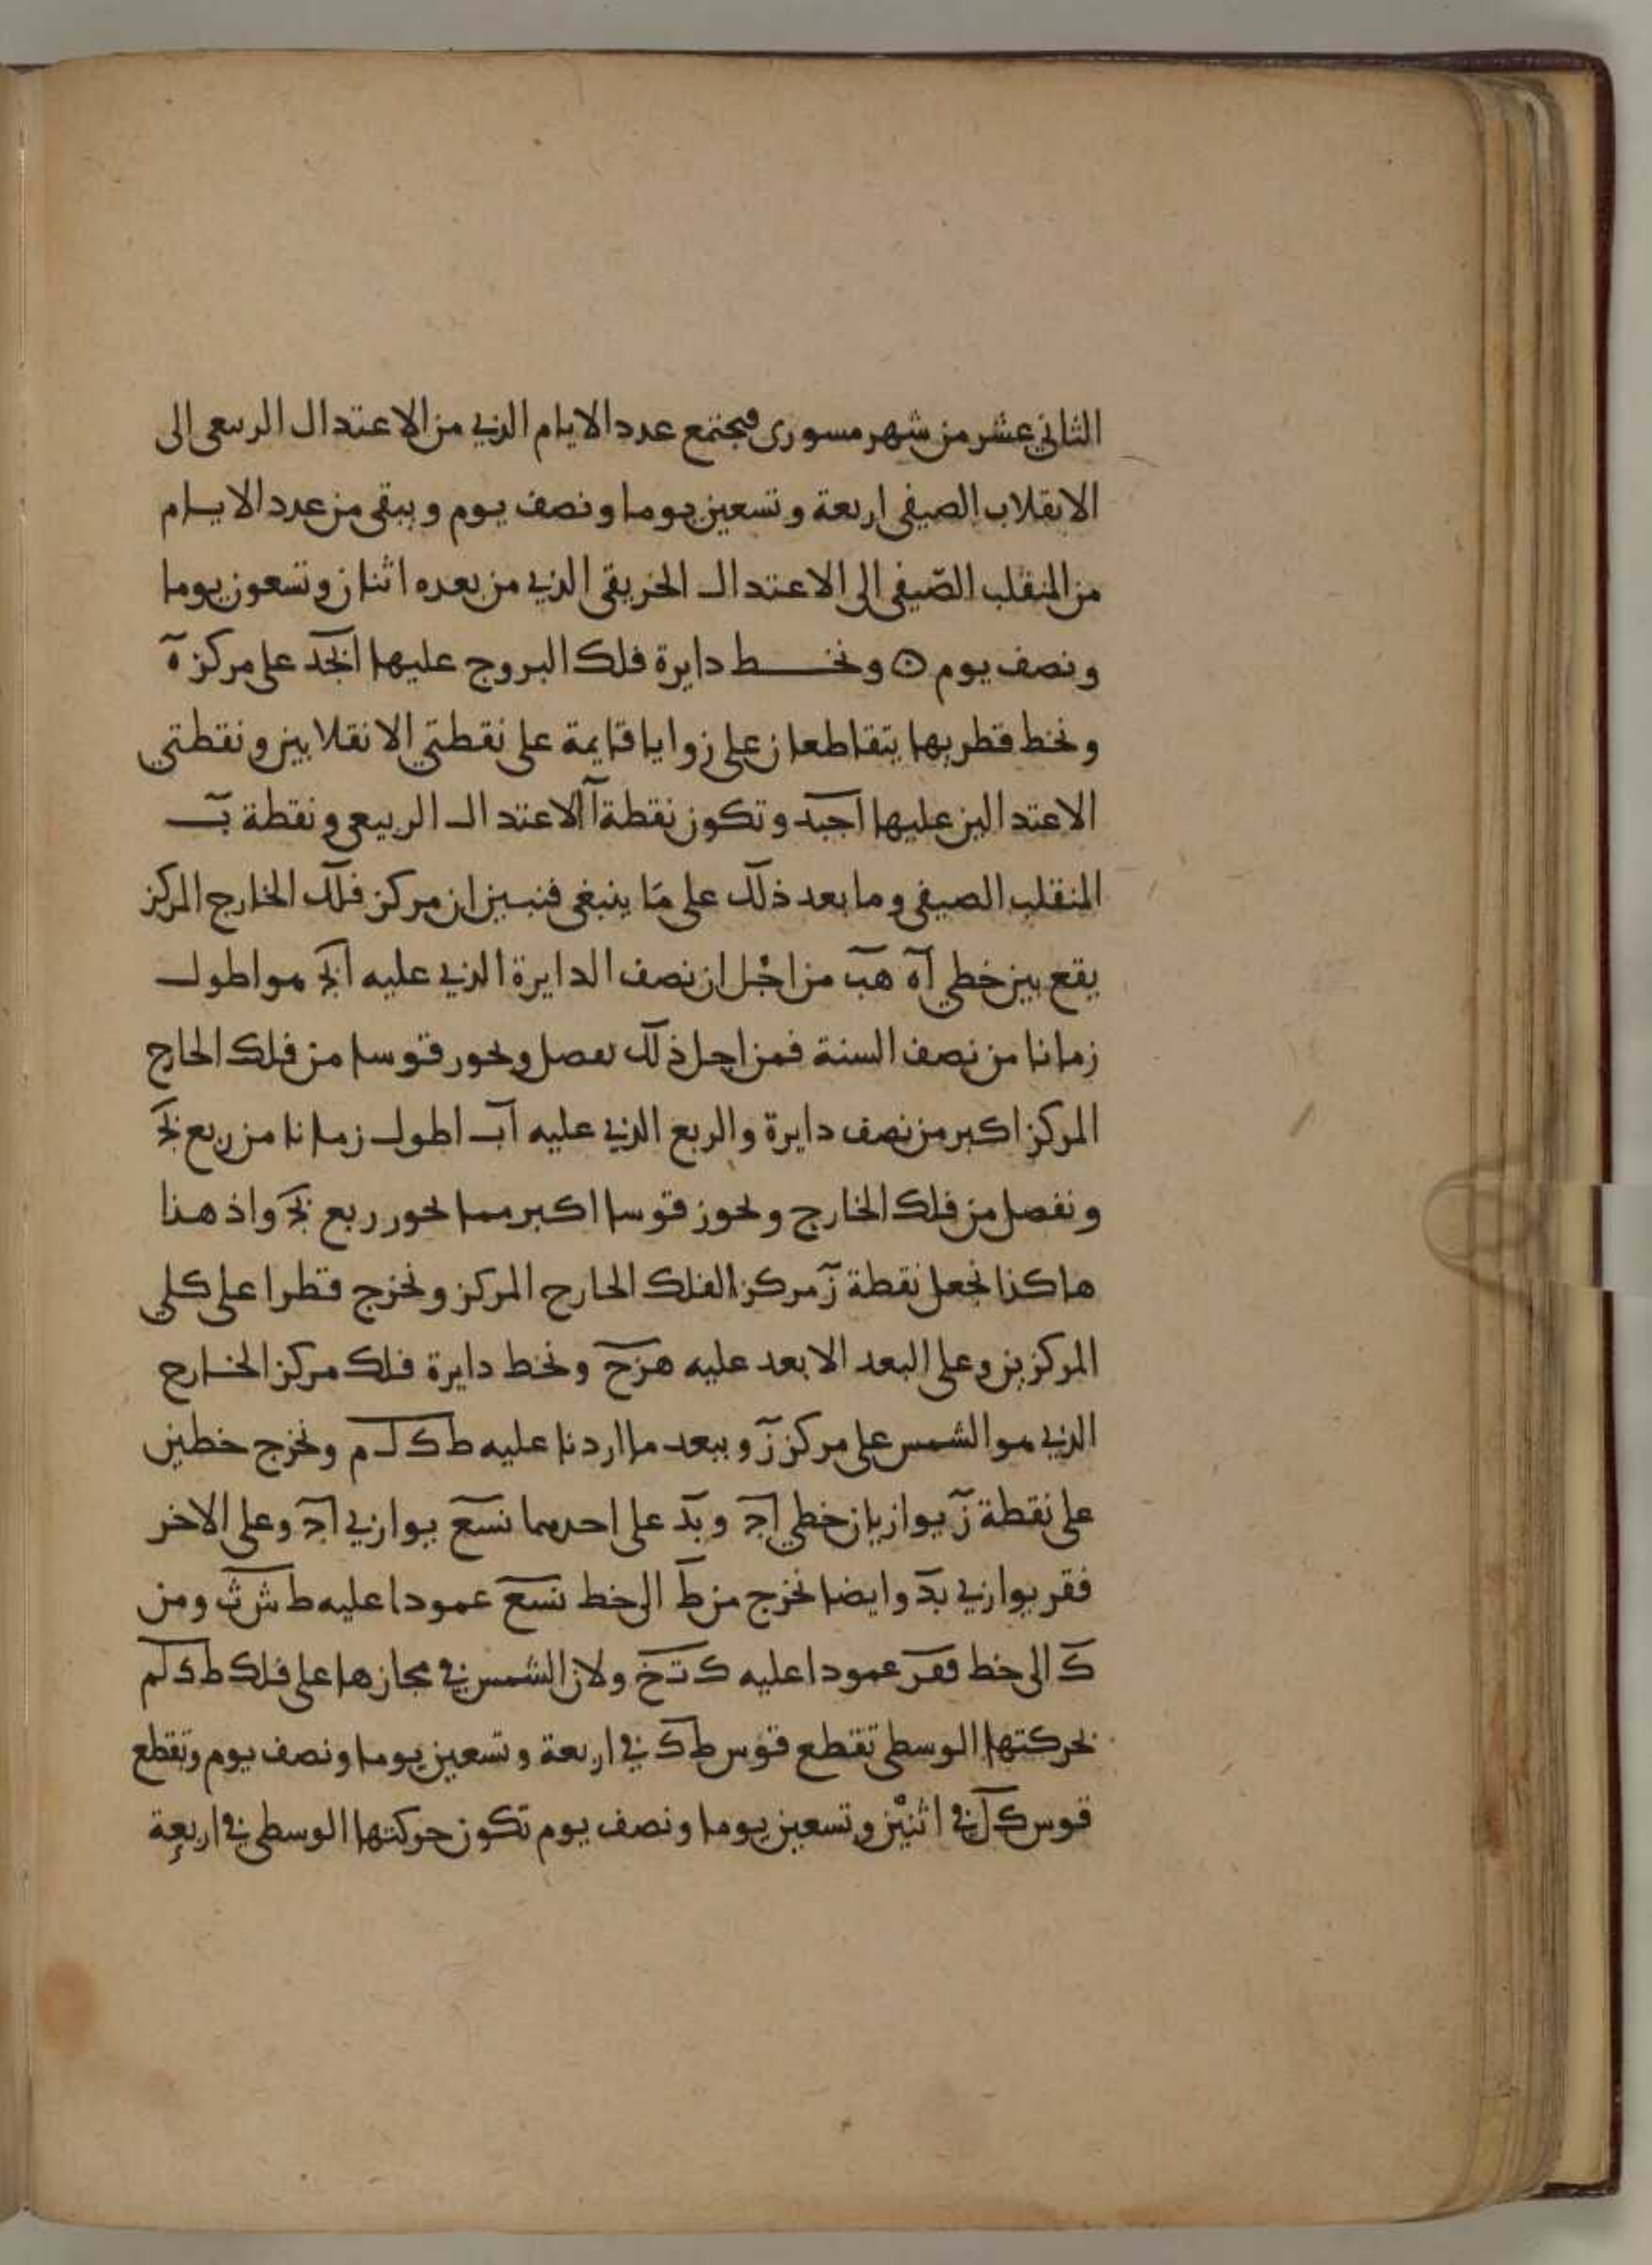 الثاني عشر من شهر مسورى فيجتمع عدد الايام الذي من الاعتدال الربيعى الى
الانقلاب الصيفى اربعة وتسعين يوما ونصف يوم ويبقى من عدد الايام
من المنقلب الصيفى الى الاعتدال الخريفى الذي من بعده اثنان وتسعون يوما
ونصف يوم ونخط دايرة فلك البروج عليها ابجد على مركز ه
ونخط قطريها يتقاطعان على زوايا قايمة على نقطتي الانقلابين ونقطتي
الاعتدالين عليها اجبد وتكون نقطة ا الاعتدال الربيعى ونقطة ب
المنقلب الصيفى وما بعد ذلك على ما ينبغى فنبين ان مركز فلك الخارج المركز
يقع بين خطي اه هب من اجل ان نصف الدايرة الذي عليه ابج هو اطول
زمانا من نصف السنة فمن اجل ذلك نفصل ونحوز قوسا من فلك الخارج
المركز اكبر من نصف دايرة والربع الذي عليه اب اطول زمانا من ربع بج
ونفصل من فلك الخارج ونحوز قوسا اكبر مما نحوز ربع بج واذ هذا
هاكذا نجعل نقطة ز مركز الفلك الخارج المركز ونخرج قطرا على كلي
المركزين وعلى البعد الابعد عليه هزح ونخط دايرة فلك مركز الخارج
الذي هو الشمس على مركز ز وببعد ما اردنا عليه ط ك ل م ونخرج خطين
على نقطة ز يوازيان خطي اج و بد على احدهما نسع يوازي اج وعلى الاخر
فقر يوازي بد وايضا نخرج من ط الى خط نسع عمودا عليه ط ش ث ومن
ك الى خط فقر عمودا عليه ك ت خ ولان الشمس في مجازها على فلك ط ك ل م
بحركتها الوسطى تقطع قوس ط ك في اربعة وتسعين يوما ونصف يوم وتقطع
قوس ك ل في اثنين وتسعين يوما ونصف يوم تكون حركتها الوسطى في اربعة